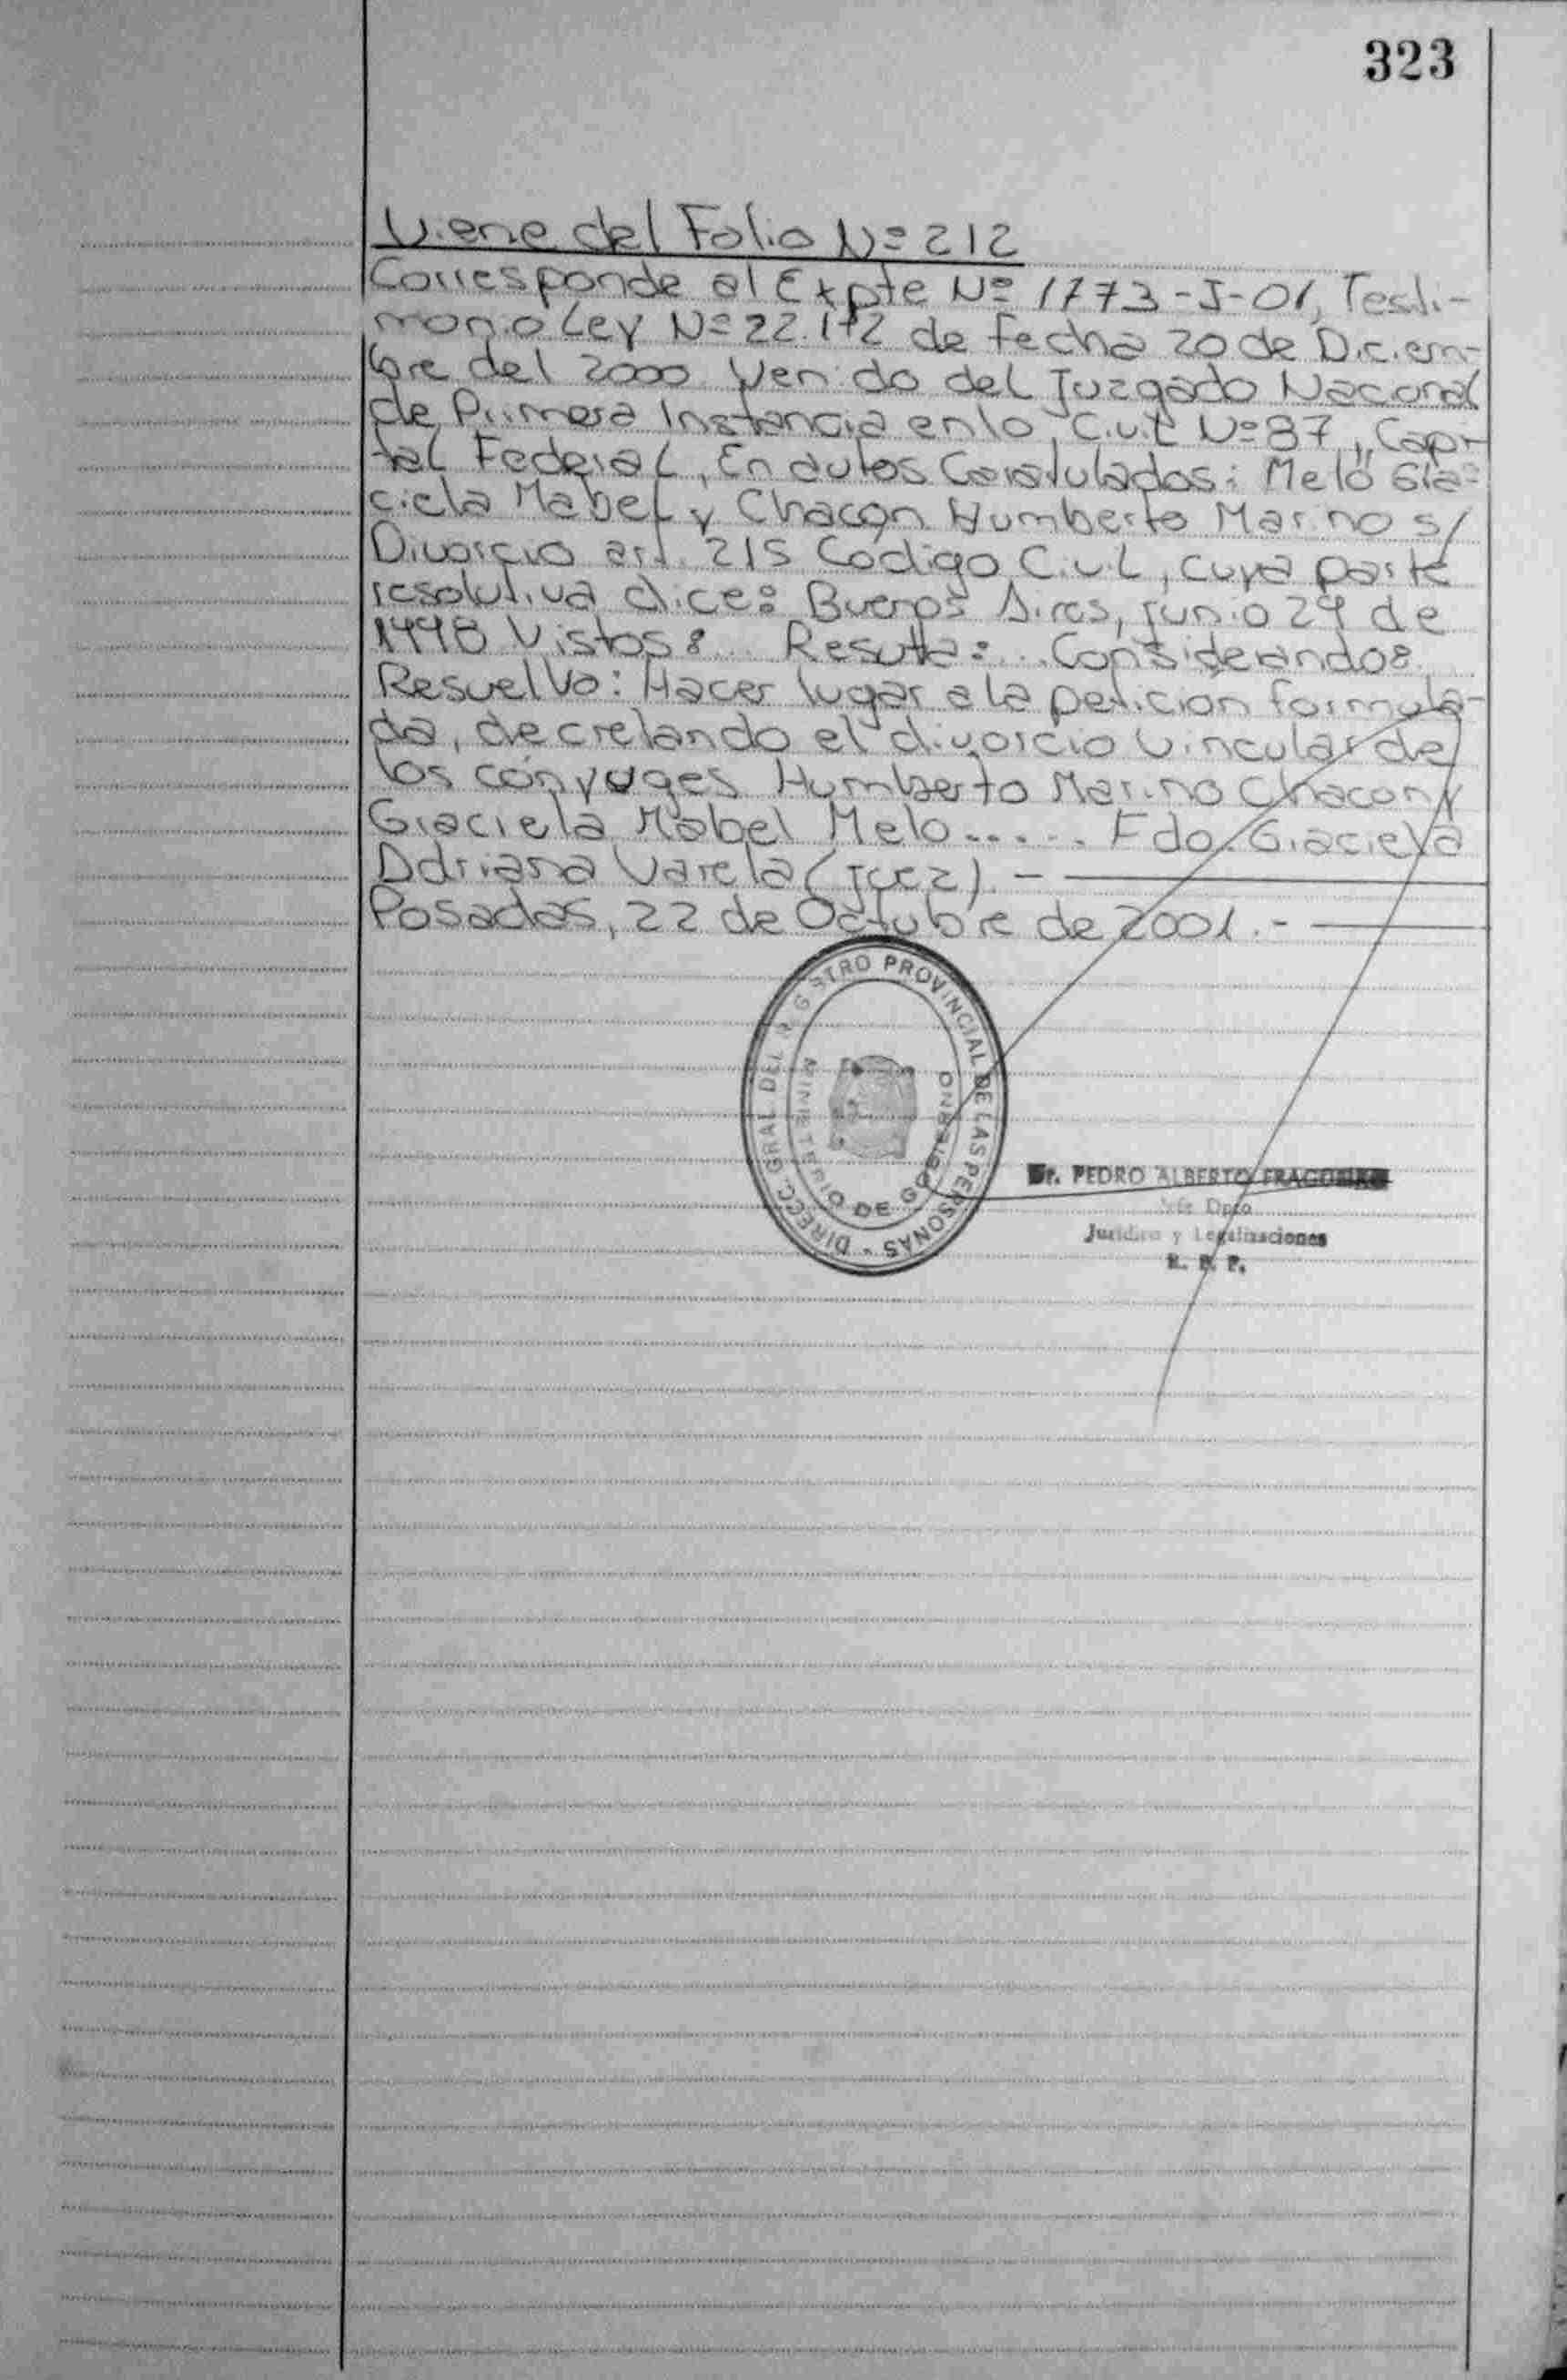 323
Viene del Folio Nº 212
Corresponde al Expte Nº 1773-J-01, Testi-
monio Ley Nº 22.172 de fecha 20 de Diciem-
bre del 2000 Venido del Juzgado Nacional
de Primera Instancia en lo Civil Nº 87, Capi-
tal Federal, En autos Caratulados: Melo Gra-
ciela Mabel y Chacon Humberto Marino s/
Divorcio art. 215 Codigo Civil, cuya parte
resolutiva dice: Buenos Aires, junio 29 de
1998 Vistos: ... Resulta: ... Considerando:
Resuelvo: Hacer lugar a la petición formula-
da, decretando el divorcio vincular de
los cónyuges Humberto Marino Chacon y
Graciela Mabel Melo ..... Fdo. Graciela
Adriana Varela (Juez). -
Posadas, 22 de Octubre de 2001. -
DIRECC. GRAL DEL REGISTRO PROVINCIAL DE LAS PERSONAS
MINISTERIO DE GOBIERNO
Dr. PEDRO ALBERTO
Jefe Dpto
Jurídico y Legalizaciones
R. P. P.